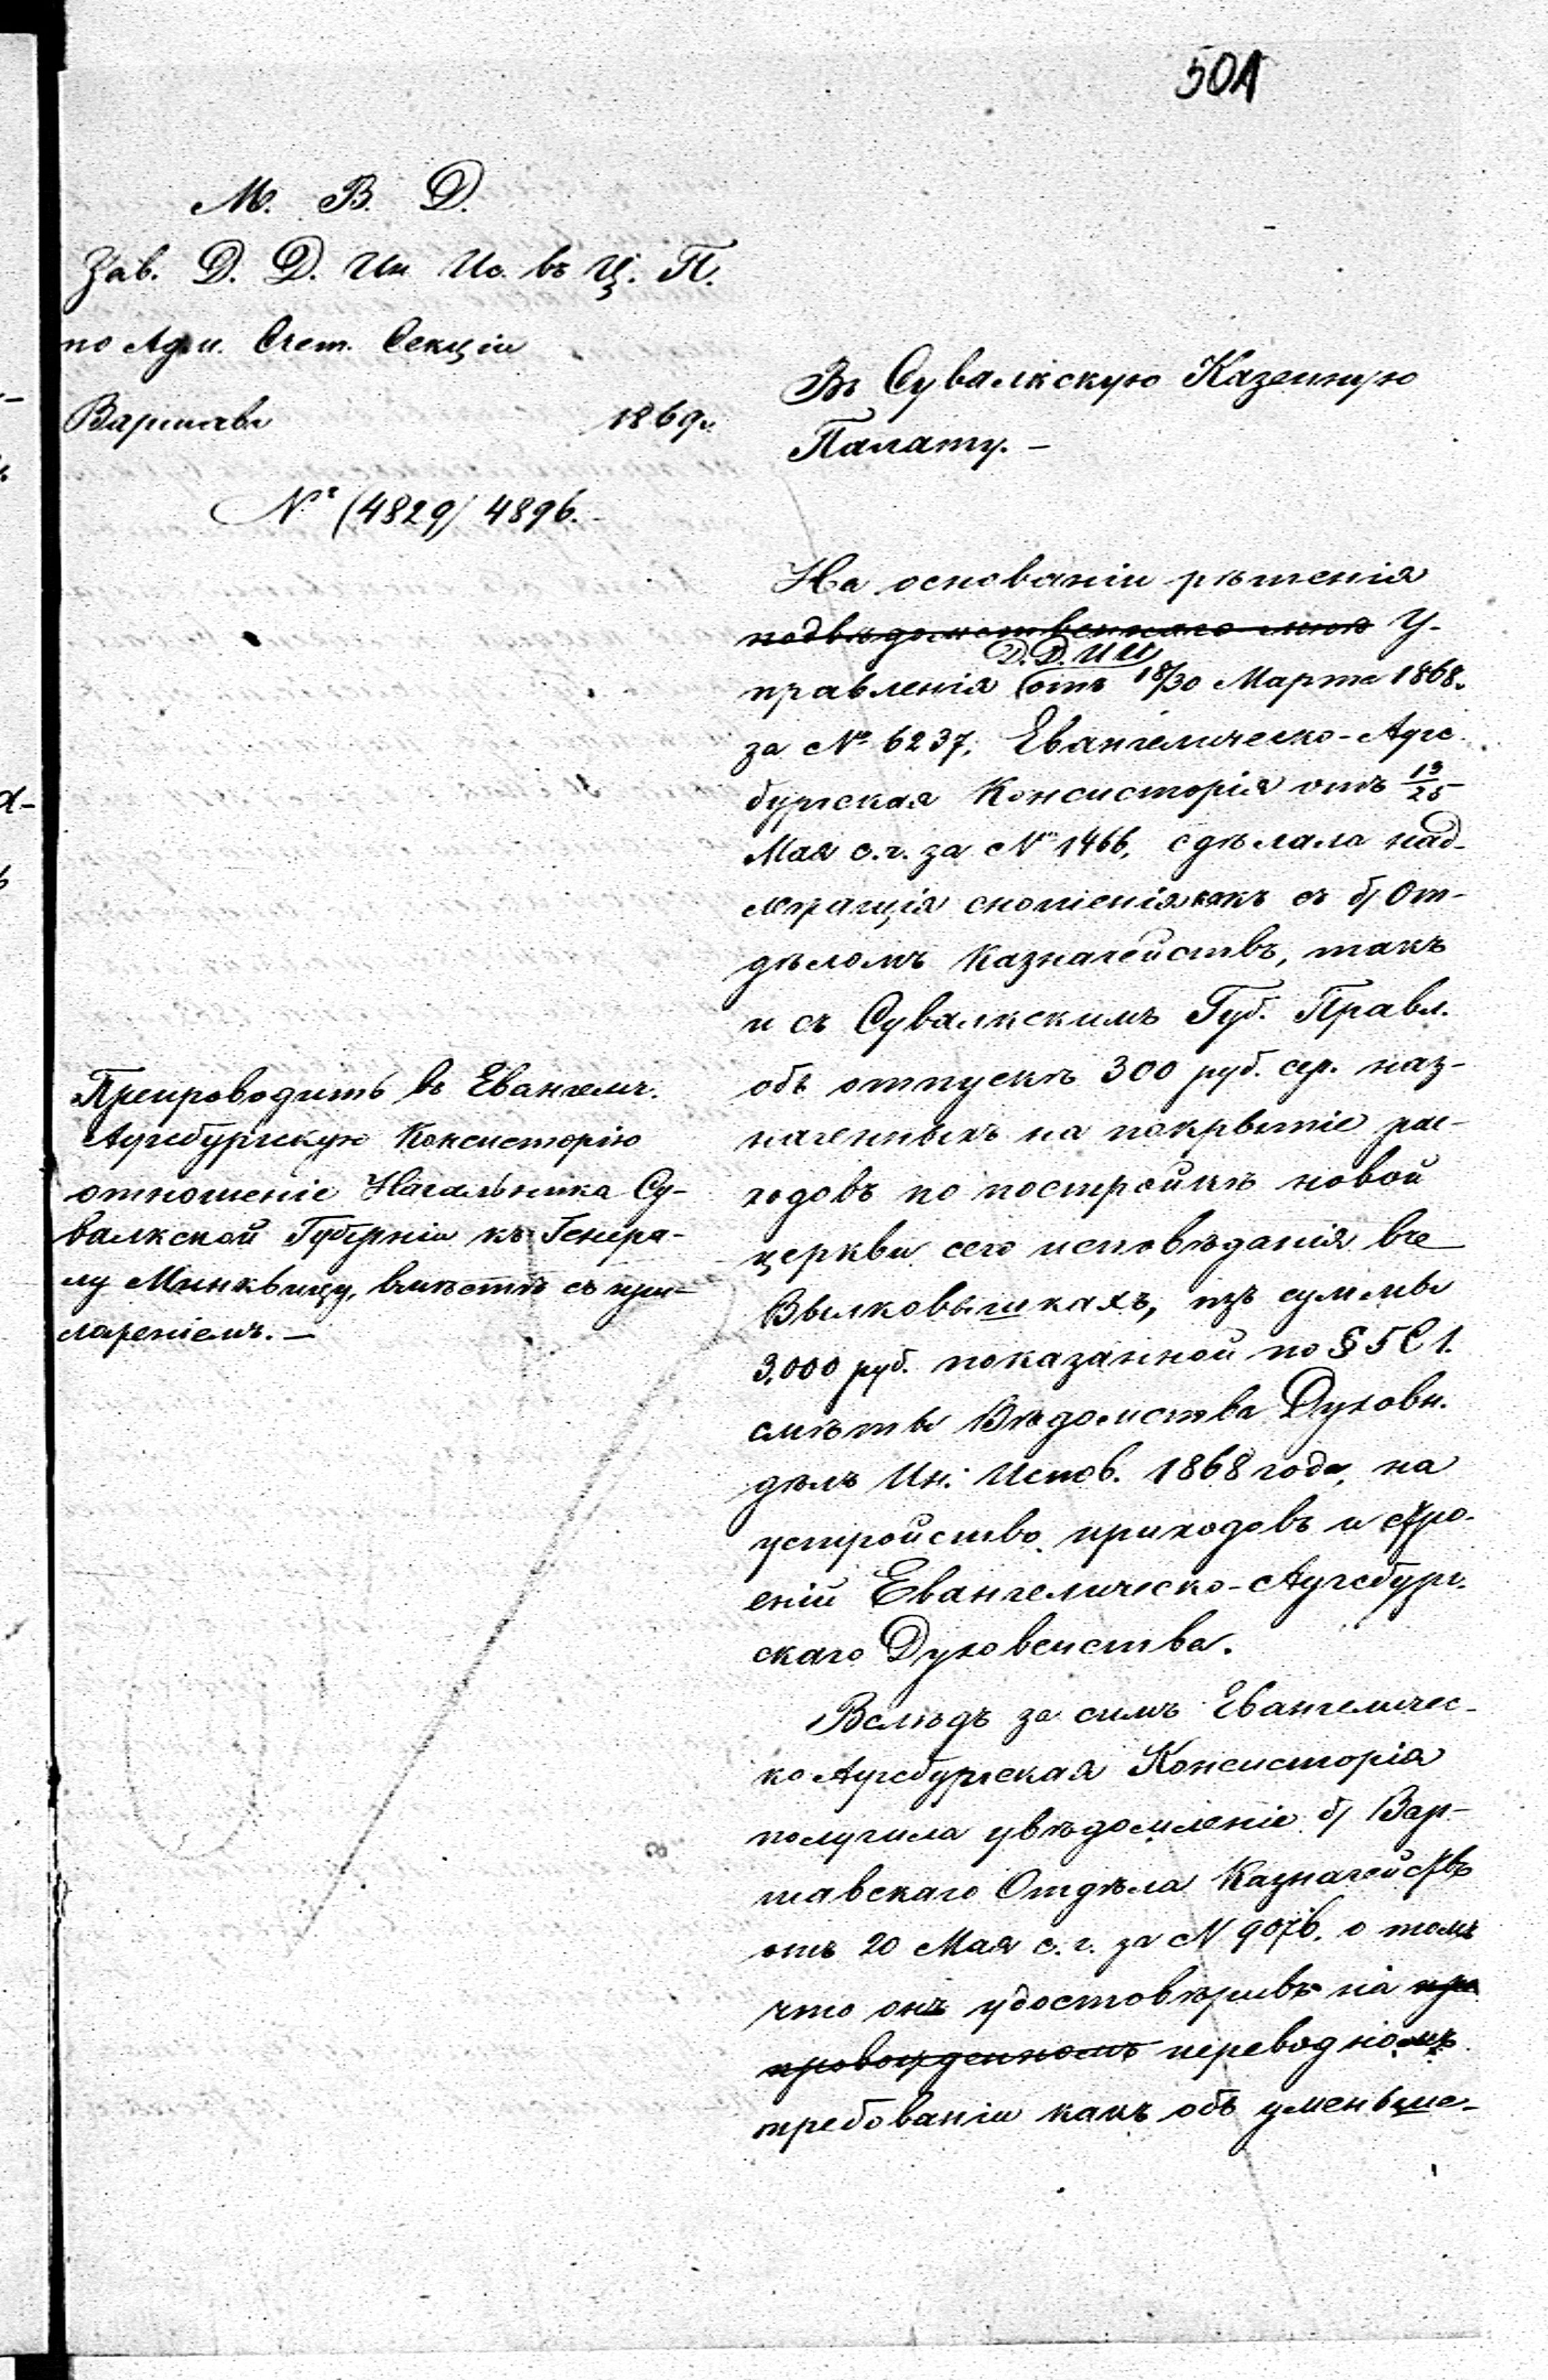 501
М. В. Д.
Зав. Д. Д. Ин. Ис. въ Ц. П.
по Адм. Счет. Секціи
Варшава 1869 г.
№ (4829) 4896.
Въ Сувалкскую Казенную
Палату. –
На основаніи рѣшенія
подвѣдомственнаго мнѣ У-
Д. Д. ИИ
правленія отъ 18/30 Марта 1868.
за № 6237, Евангелическо-Аугс
бургская Консисторія отъ 13/25
Мая с. г. за № 1466, сдѣлала над-
лежащія сношенія какъ съ б/ От-
дѣломъ Казначействъ, такъ
и съ Сувалкскимъ Губ. Правл.
объ отпускѣ 300 руб. сер. наз-
наченныхъ на покрытіе рас-
ходовъ по постройкѣ новой
церкви сего исповѣданія въ
Вылковышкахъ, изъ суммы
3,000 руб. показанной по § 5 С 1.
смѣты Вѣдомства Духовн.
дѣлъ Ин. Испов. 1868 года, на
устройство приходовъ и стро-
еній Евангелическо-Аугсбург-
скаго Духовенства.
Вслѣдъ за симъ Евангеличес-
ко Аугсбургская Консисторія
получила увѣдомленіе б/ Вар-
шавскаго Отдѣла Казначействъ
отъ 20 Мая с. г. за № 9076, о томъ
что онъ удостовѣривъ на пре
провожденномъ переводномъ
требованіи какъ объ уменьше-
Препроводить въ Евангелич.
Аугсбургскую Консисторію
отношеніе Начальника Су-
валкской Губерніи къ Генера-
лу Минквицу, вмѣстѣ съ при-
ложеніемъ. –